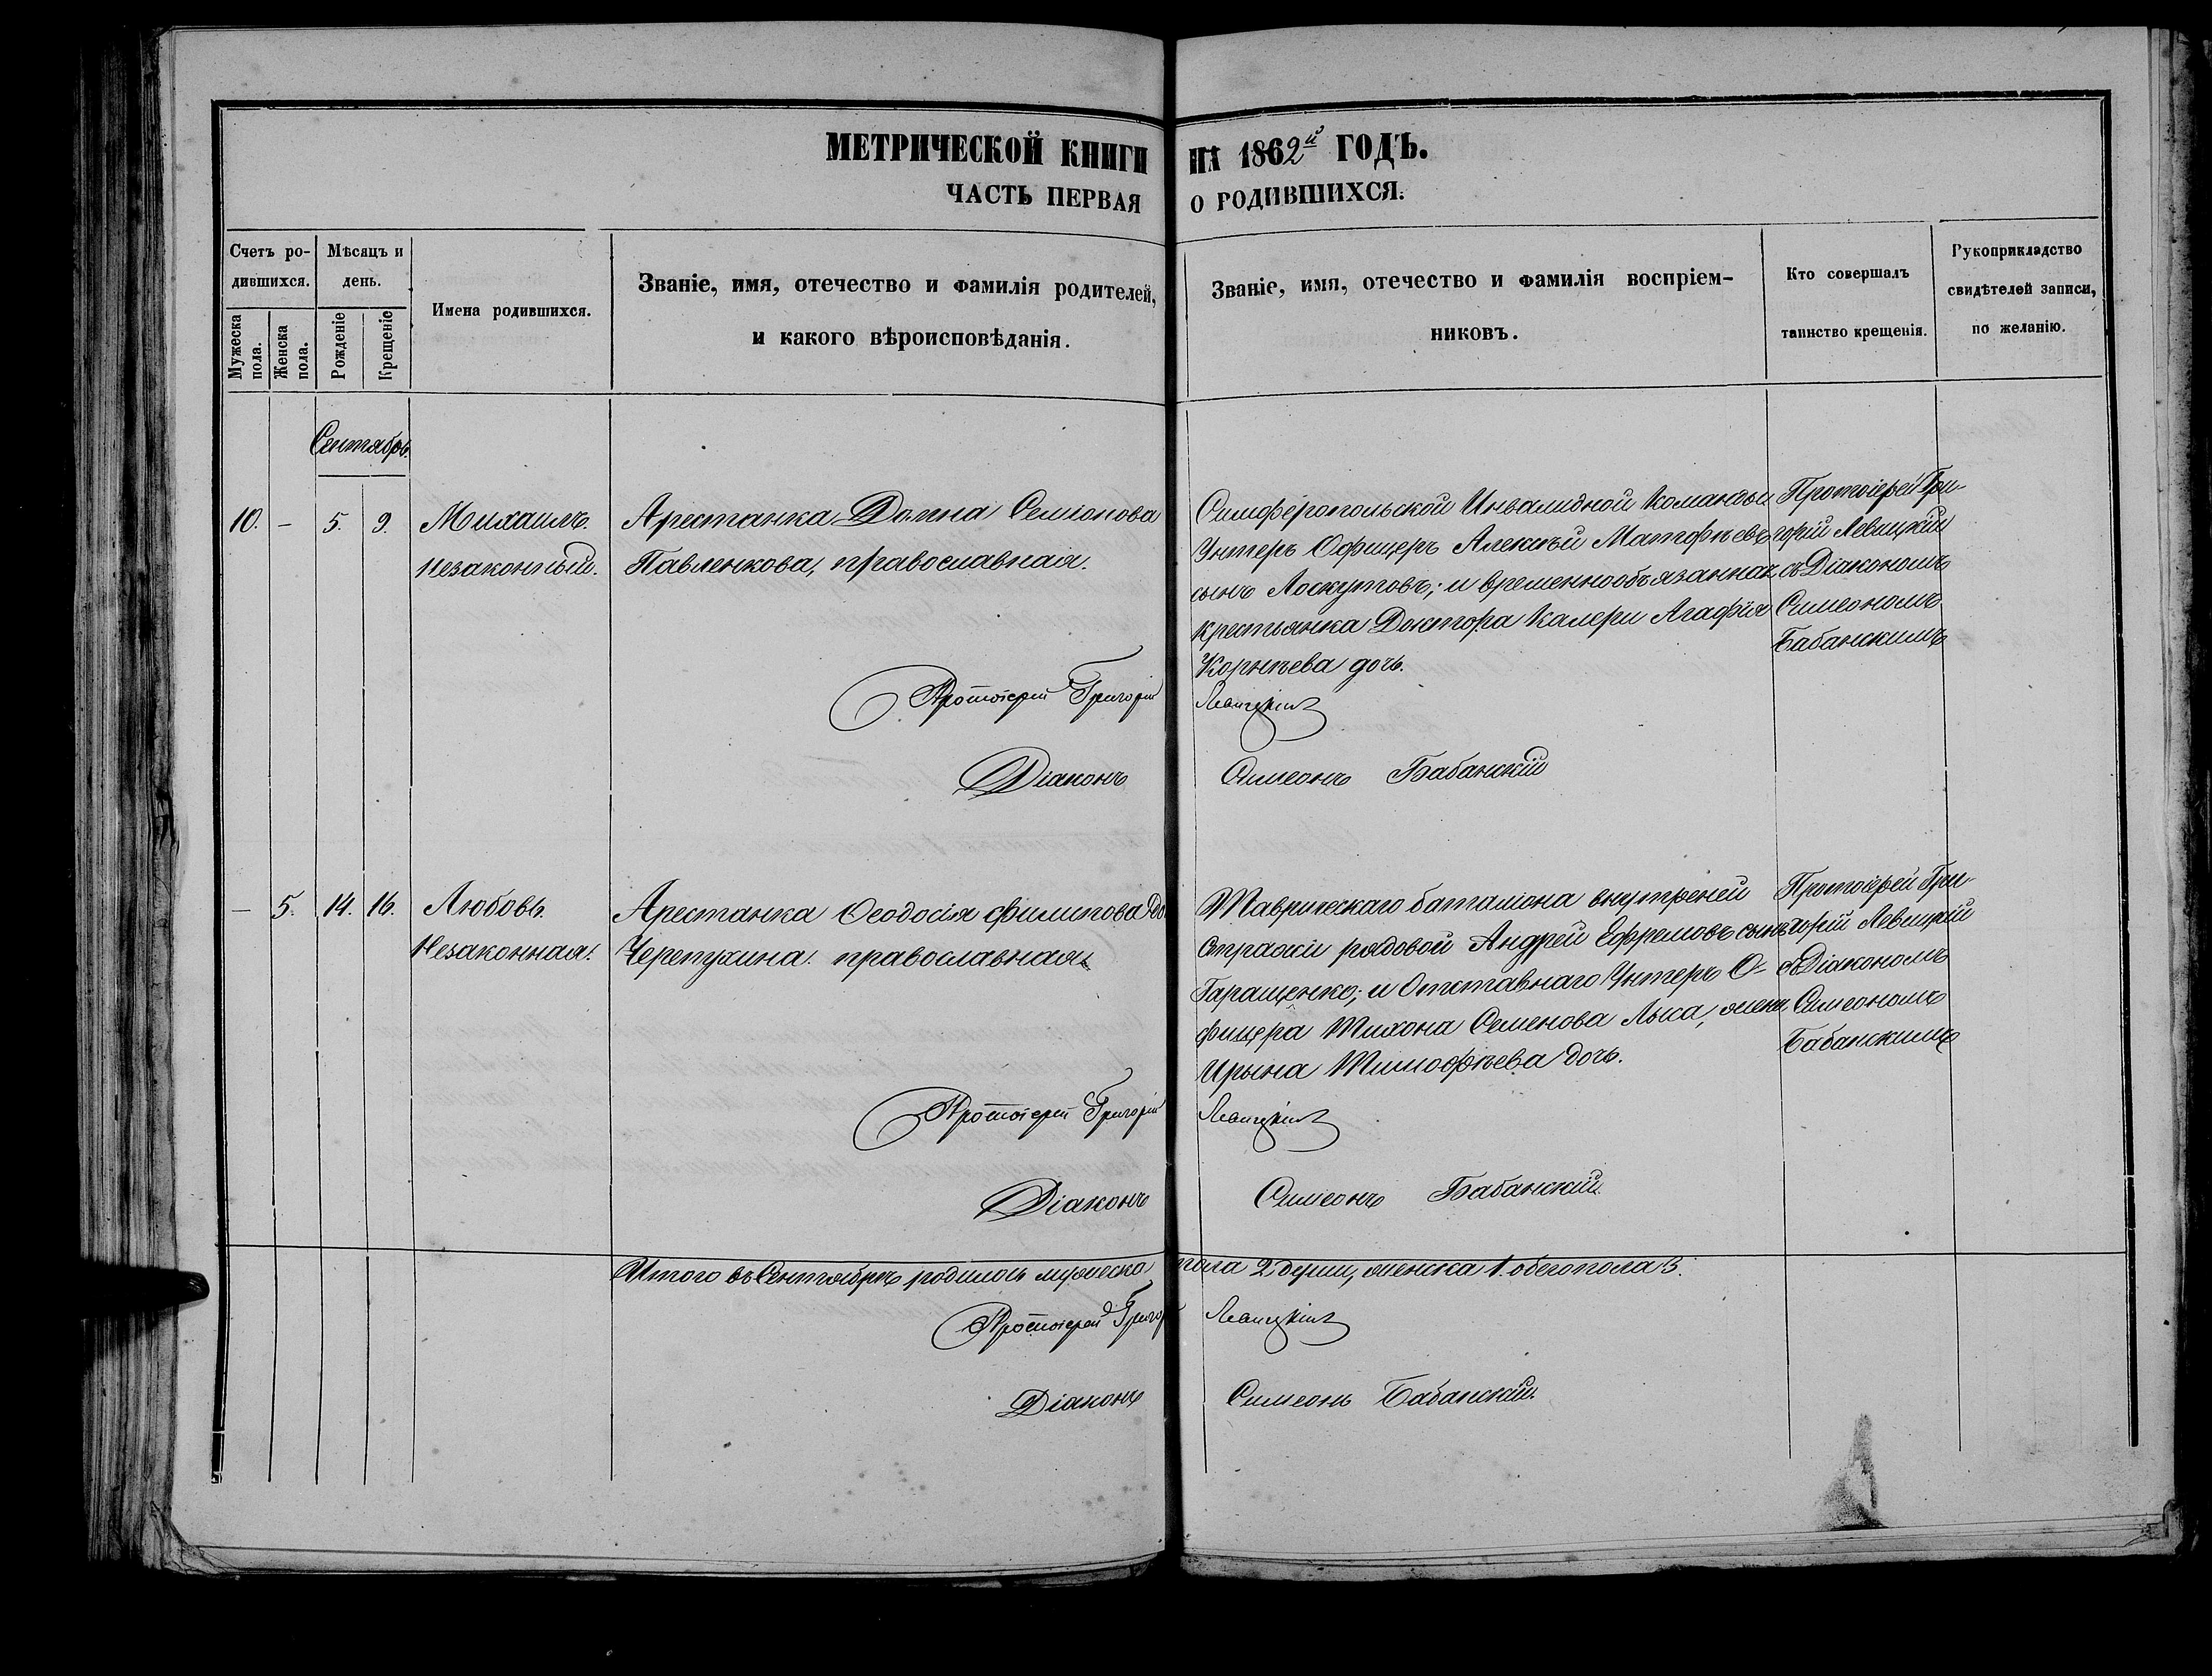 МЕТРИЧЕСКОЙ КНИГИ НА 1862й ГОДЪ.
ЧАСТЬ ПЕРВАЯ О РОДИВШИХСЯ.
Счетъ ро-
дившихся.
Мужеска пола.
Женска пола.
Мѣсяцъ и
день.
Рожденіе
Крещеніе
Имена родившихся.
Званіе, имя, отечество и фамилія родителей,
и какого вѣроисповѣданія.
Званіе, имя, отечество и фамилія воспріем-
никовъ.
Кто совершалъ
таинство крещенія.
Рукоприкладство
свидѣтелей записи,
по желанію.
Сентябрь.
10. – 5. 9.
Михаилъ.
Незаконный.
Арестанка Домна Семіонова
Павленкова, православная.
Симферопольской Инвалидной Команды
Унтеръ Офицеръ Алексѣй Матофѣевъ
сынъ Лоскутовъ; и временнообязанная
крестьянка Доктора Калери Агафія
Корнѣева дочь.
Протоіерей Гри-
горій Левицкій
съ Діакономъ
Симеономъ
Бабанскимъ
Протоіерей Григорій Левицкій
Діаконъ Симеонъ Бабанскій
– 5. 14. 16.
Любовь.
Незаконная.
Арестанка Ѳеодосія Филипова до
Черепухина. православная.
Таврическаго баталіона внутреней
Стражи рядовой Андрей Ефремовъ сынъ
Гаращенко; и Отставнаго Унтеръ О-
фицера Тихона Семенова Лыса, жена
Ирына Тимофѣева дочь.
Протоіерей Гри-
горій Левицкій
съ Діакономъ
Симеономъ
Бабанскимъ
Протоіерей Григорій Левицкій
Діаконъ Симеонъ Бабанскій
Итого въ Сентябрѣ родилось мужеска пола 2 души, женска 1. обего пола 3.
Протоіерей Григор Левицкій
Діаконъ Симеонъ Бабанскій.